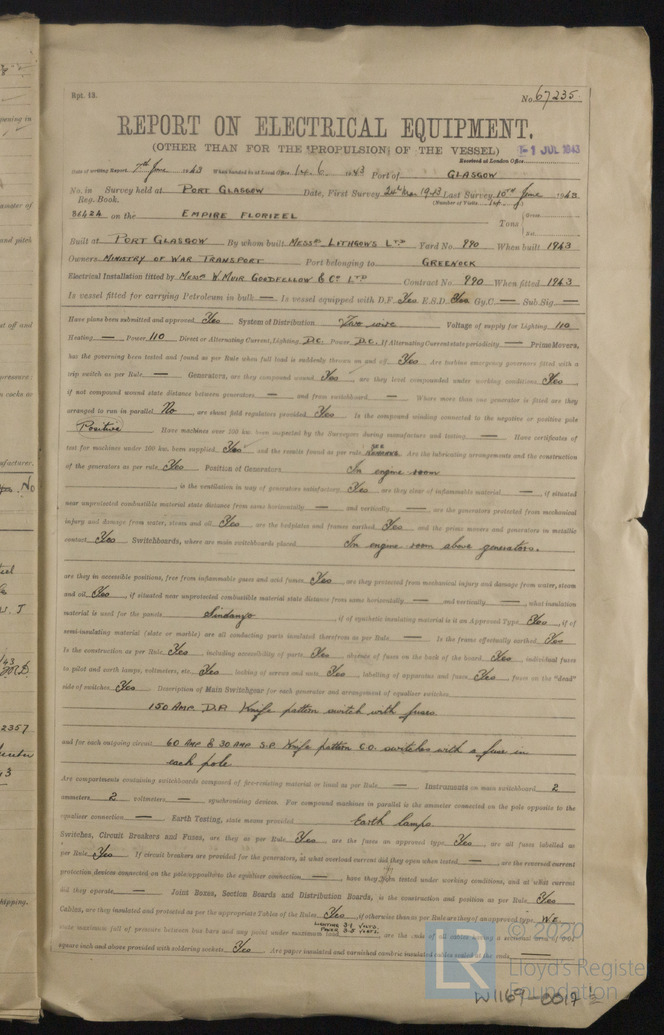 Rpt. 13.
No. 67235
REPORT ON ELECTRICAL EQUIPMENT.
(OTHER THAN FOR THE PROPULSION OF THE VESSEL)
-1 JUL 1943
Received at London Office
Date of writing Report 7th June 1943 When handed in at Local Office 14.6. 1943 Port of GLASGOW
No. in Survey held at PORT GLASGOW Date, First Survey 24th Mar 1943 Last Survey 10th June 1943
Reg. Book. (Number of Visits 14.)
36424 on the EMPIRE FLORIZEL Tons
Built at PORT GLASGOW By whom built MESSRS LITHGOWS LTD Yard No. 990 When built 1943
Owners MINISTRY OF WAR TRANSPORT Port belonging to GREENOCK
Electrical Installation fitted by MESSRS W. MUIR GOODFELLOW & CO LTD Contract No. 990 When fitted 1943
Is vessel fitted for carrying Petroleum in bulk — Is vessel equipped with D.F. Yes E.S.D. Yes Gy.C. — Sub.Sig. —
Have plans been submitted and approved Yes System of Distribution Two wire Voltage of supply for Lighting 110
Heating — Power 110 Direct or Alternating Current, Lighting D.C. Power D.C. If Alternating Current state periodicity — Prime Movers,
has the governing been tested and found as per Rule when full load is suddenly thrown on and off Yes Are turbine emergency governors fitted with a
trip switch as per Rule — Generators, are they compound wound Yes, are they level compounded under working conditions Yes,
if not compound wound state distance between generators — and from switchboard — Where more than one generator is fitted are they
arranged to run in parallel No, are shunt field regulators provided Yes Is the compound winding connected to the negative or positive pole
Positive Have machines over 100 kw. been inspected by the Surveyors during manufacture and testing — Have certificates of
test for machines under 100 kw. been supplied Yes and the results found as per rule SEE REMARKS Are the lubricating arrangements and the construction
of the generators as per rule Yes Position of Generators In engine room
, is the ventilation in way of generators satisfactory Yes are they clear of inflammable material —, if situated
near unprotected combustible material state distance from same horizontally — and vertically —, are the generators protected from mechanical
injury and damage from water, steam and oil Yes, are the bedplates and frames earthed Yes and the prime movers and generators in metallic
contact Yes Switchboards, where are main switchboards placed In engine room above generators.
are they in accessible positions, free from inflammable gases and acid fumes Yes, are they protected from mechanical injury and damage from water, steam
and oil Yes, if situated near unprotected combustible material state distance from same horizontally — and vertically —, what insulation
material is used for the panels Sindanyo, if of synthetic insulating material is it an Approved Type Yes, if of
semi-insulating material (slate or marble) are all conducting parts insulated therefrom as per Rule — Is the frame effectually earthed Yes
Is the construction as per Rule Yes, including accessibility of parts Yes, absence of fuses on the back of the board Yes, individual fuses
to pilot and earth lamps, voltmeters, etc. Yes locking of screws and nuts Yes, labelling of apparatus and fuses Yes, fuses on the "dead"
side of switches Yes Description of Main Switchgear for each generator and arrangement of equaliser switches
150 AMP D.P. Knife pattern switch with fuses.
and for each outgoing circuit 60 AMP & 30 AMP S.P. Knife pattern C.O. switches with a fuse in
each pole.
Are compartments containing switchboards composed of fire-resisting material or lined as per Rule — Instruments on main switchboard 2
ammeters 2 voltmeters — synchronising devices. For compound machines in parallel is the ammeter connected on the pole opposite to the
equaliser connection — Earth Testing, state means provided Earth lamps
Switches, Circuit Breakers and Fuses, are they as per Rule Yes, are the fuses an approved type Yes, are all fuses labelled as
per Rule Yes If circuit breakers are provided for the generators, at what overload current did they open when tested —, are the reversed current
protection devices connected on the pole opposite to the equaliser connection —, have they been tested under working conditions, and at what current
did they operate — Joint Boxes, Section Boards and Distribution Boards, is the construction and position as per Rule Yes
Cables, are they insulated and protected as per the appropriate Tables of the Rules Yes, if otherwise than as per Rule are they of an approved type
state maximum fall of pressure between bus bars and any point under maximum load LIGHTING 3.1 VOLTS. POWER 3.5 VOLTS., are the ends of all cables having a sectional area of 0.01
square inch and above provided with soldering sockets Yes Are paper insulated and varnished cambric insulated cables sealed at the ends —
© 2020
LR
Lloyd's Register
Foundation
W1169-0017